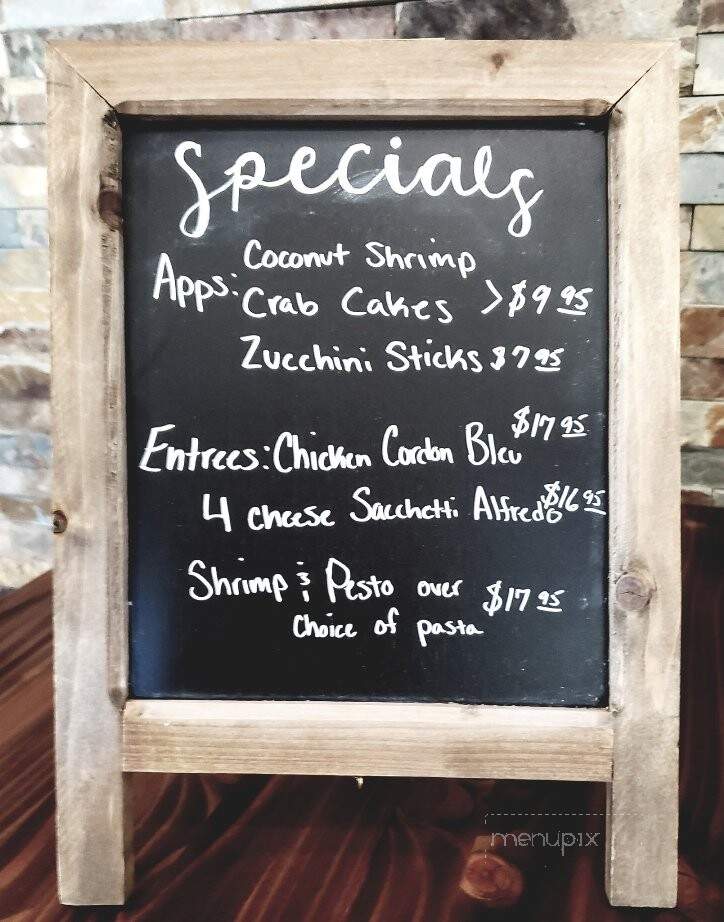 Specials
Coconut Shrimp
Apps: Crab Cakes > $9 95
Zucchini Sticks $7 95
Entrees: Chicken Cordon Bleu $17 95
4 cheese Sacchetti Alfredo $16 95
Shrimp & Pesto over $17 95
Choice of pasta
menupix